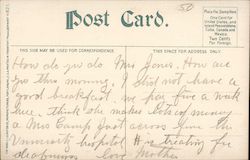 50
Post Card.
Place the Stamp here
One Cent for United States and Island Possessions, Cuba, Canada and Mexico.
Two Cents For Foreign.
THIS SIDE MAY BE USED FOR CORRESPONDENCE
THIS SPACE FOR ADDRESS ONLY
How do yo do Mrs Jones. How are
you this morning. I did not have a
good breakfast. we pay five a week
here. think she makes lots of money
a Mrs Camp just across from the
University hospital. H is treating for
Love Mother